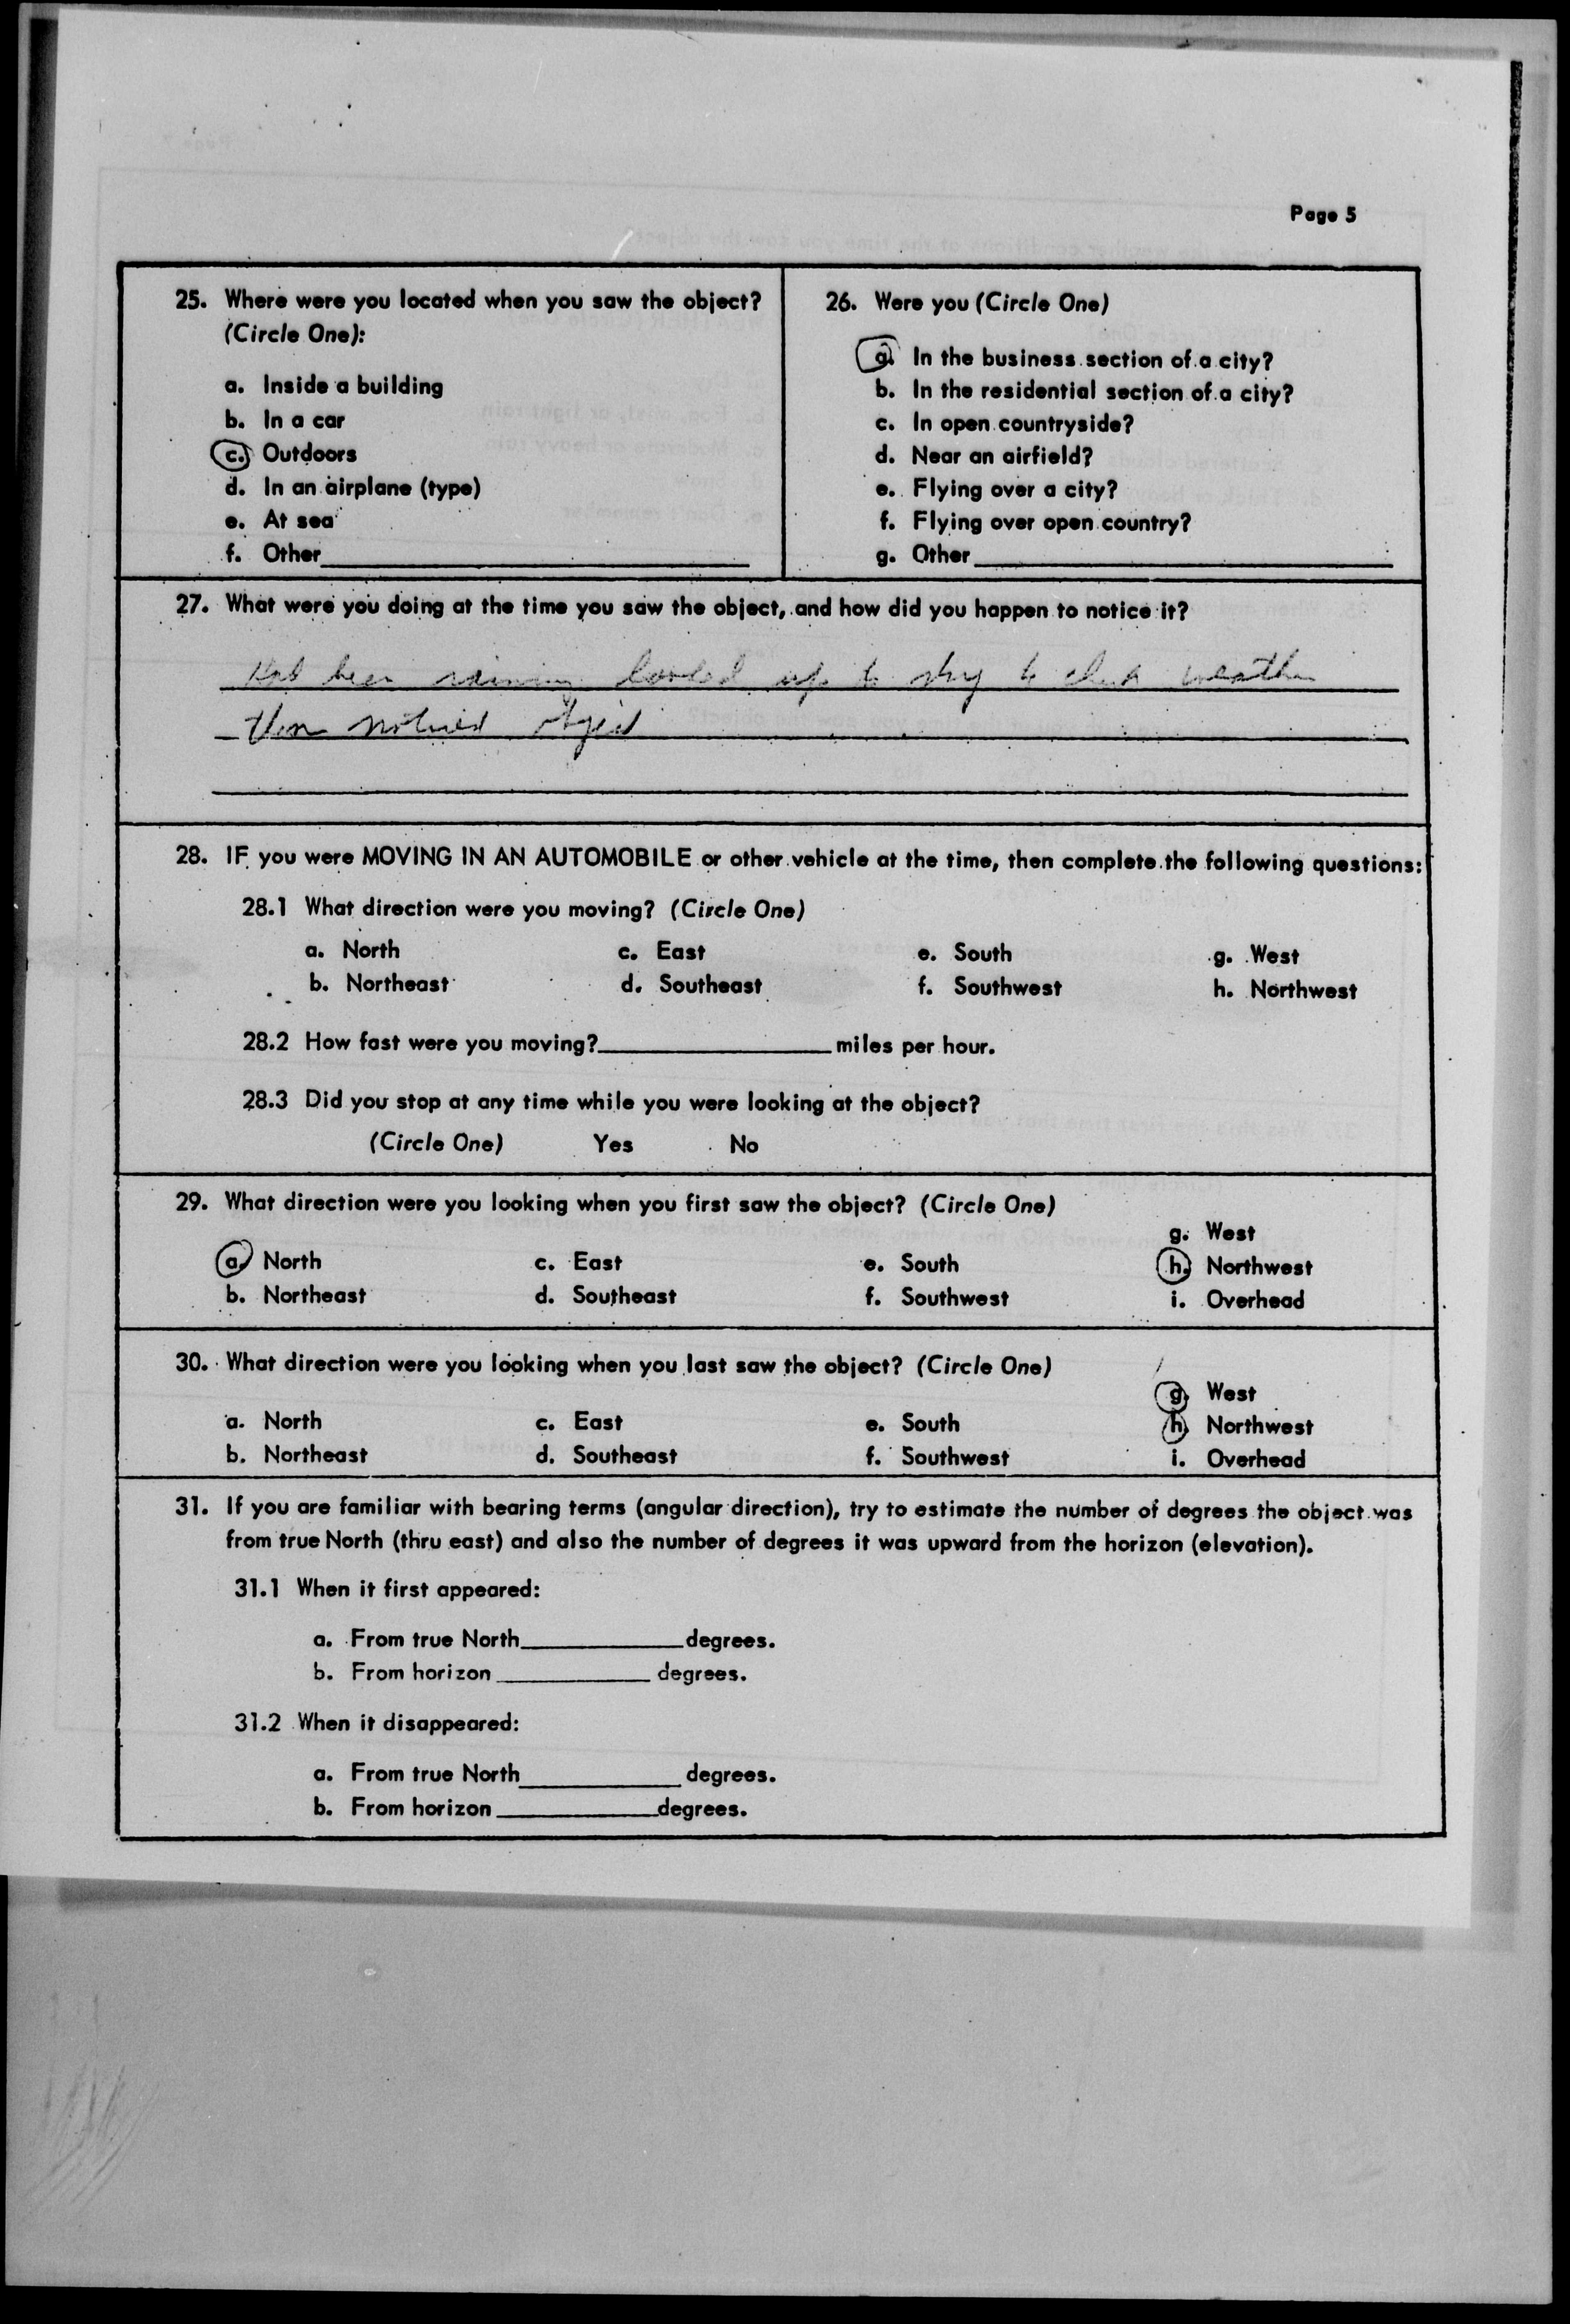 Page 5
25. Where were you located when you saw the object?
(Circle One):
a. Inside a building
b. In a car
c. Outdoors
d. In an airplane (type)
e. At sea
f. Other
26. Were you (Circle One)
a. In the business section of a city?
b. In the residential section of a city?
c. In open countryside?
d. Near an airfield?
e. Flying over a city?
f. Flying over open country?
g. Other
27. What were you doing at the time you saw the object, and how did you happen to notice it?
Had been raining looked up to sky to check weather
then noticed object
28. IF you were MOVING IN AN AUTOMOBILE or other vehicle at the time, then complete the following questions:
28.1 What direction were you moving? (Circle One)
a. North c. East e. South g. West
b. Northeast d. Southeast f. Southwest h. Northwest
28.2 How fast were you moving? miles per hour.
28.3 Did you stop at any time while you were looking at the object?
(Circle One) Yes No
29. What direction were you looking when you first saw the object? (Circle One)
g. West
a. North c. East e. South h. Northwest
b. Northeast d. Southeast f. Southwest i. Overhead
30. What direction were you looking when you last saw the object? (Circle One)
g. West
a. North c. East e. South h. Northwest
b. Northeast d. Southeast f. Southwest i. Overhead
31. If you are familiar with bearing terms (angular direction), try to estimate the number of degrees the object was
from true North (thru east) and also the number of degrees it was upward from the horizon (elevation).
31.1 When it first appeared:
a. From true North degrees.
b. From horizon degrees.
31.2 When it disappeared:
a. From true North degrees.
b. From horizon degrees.